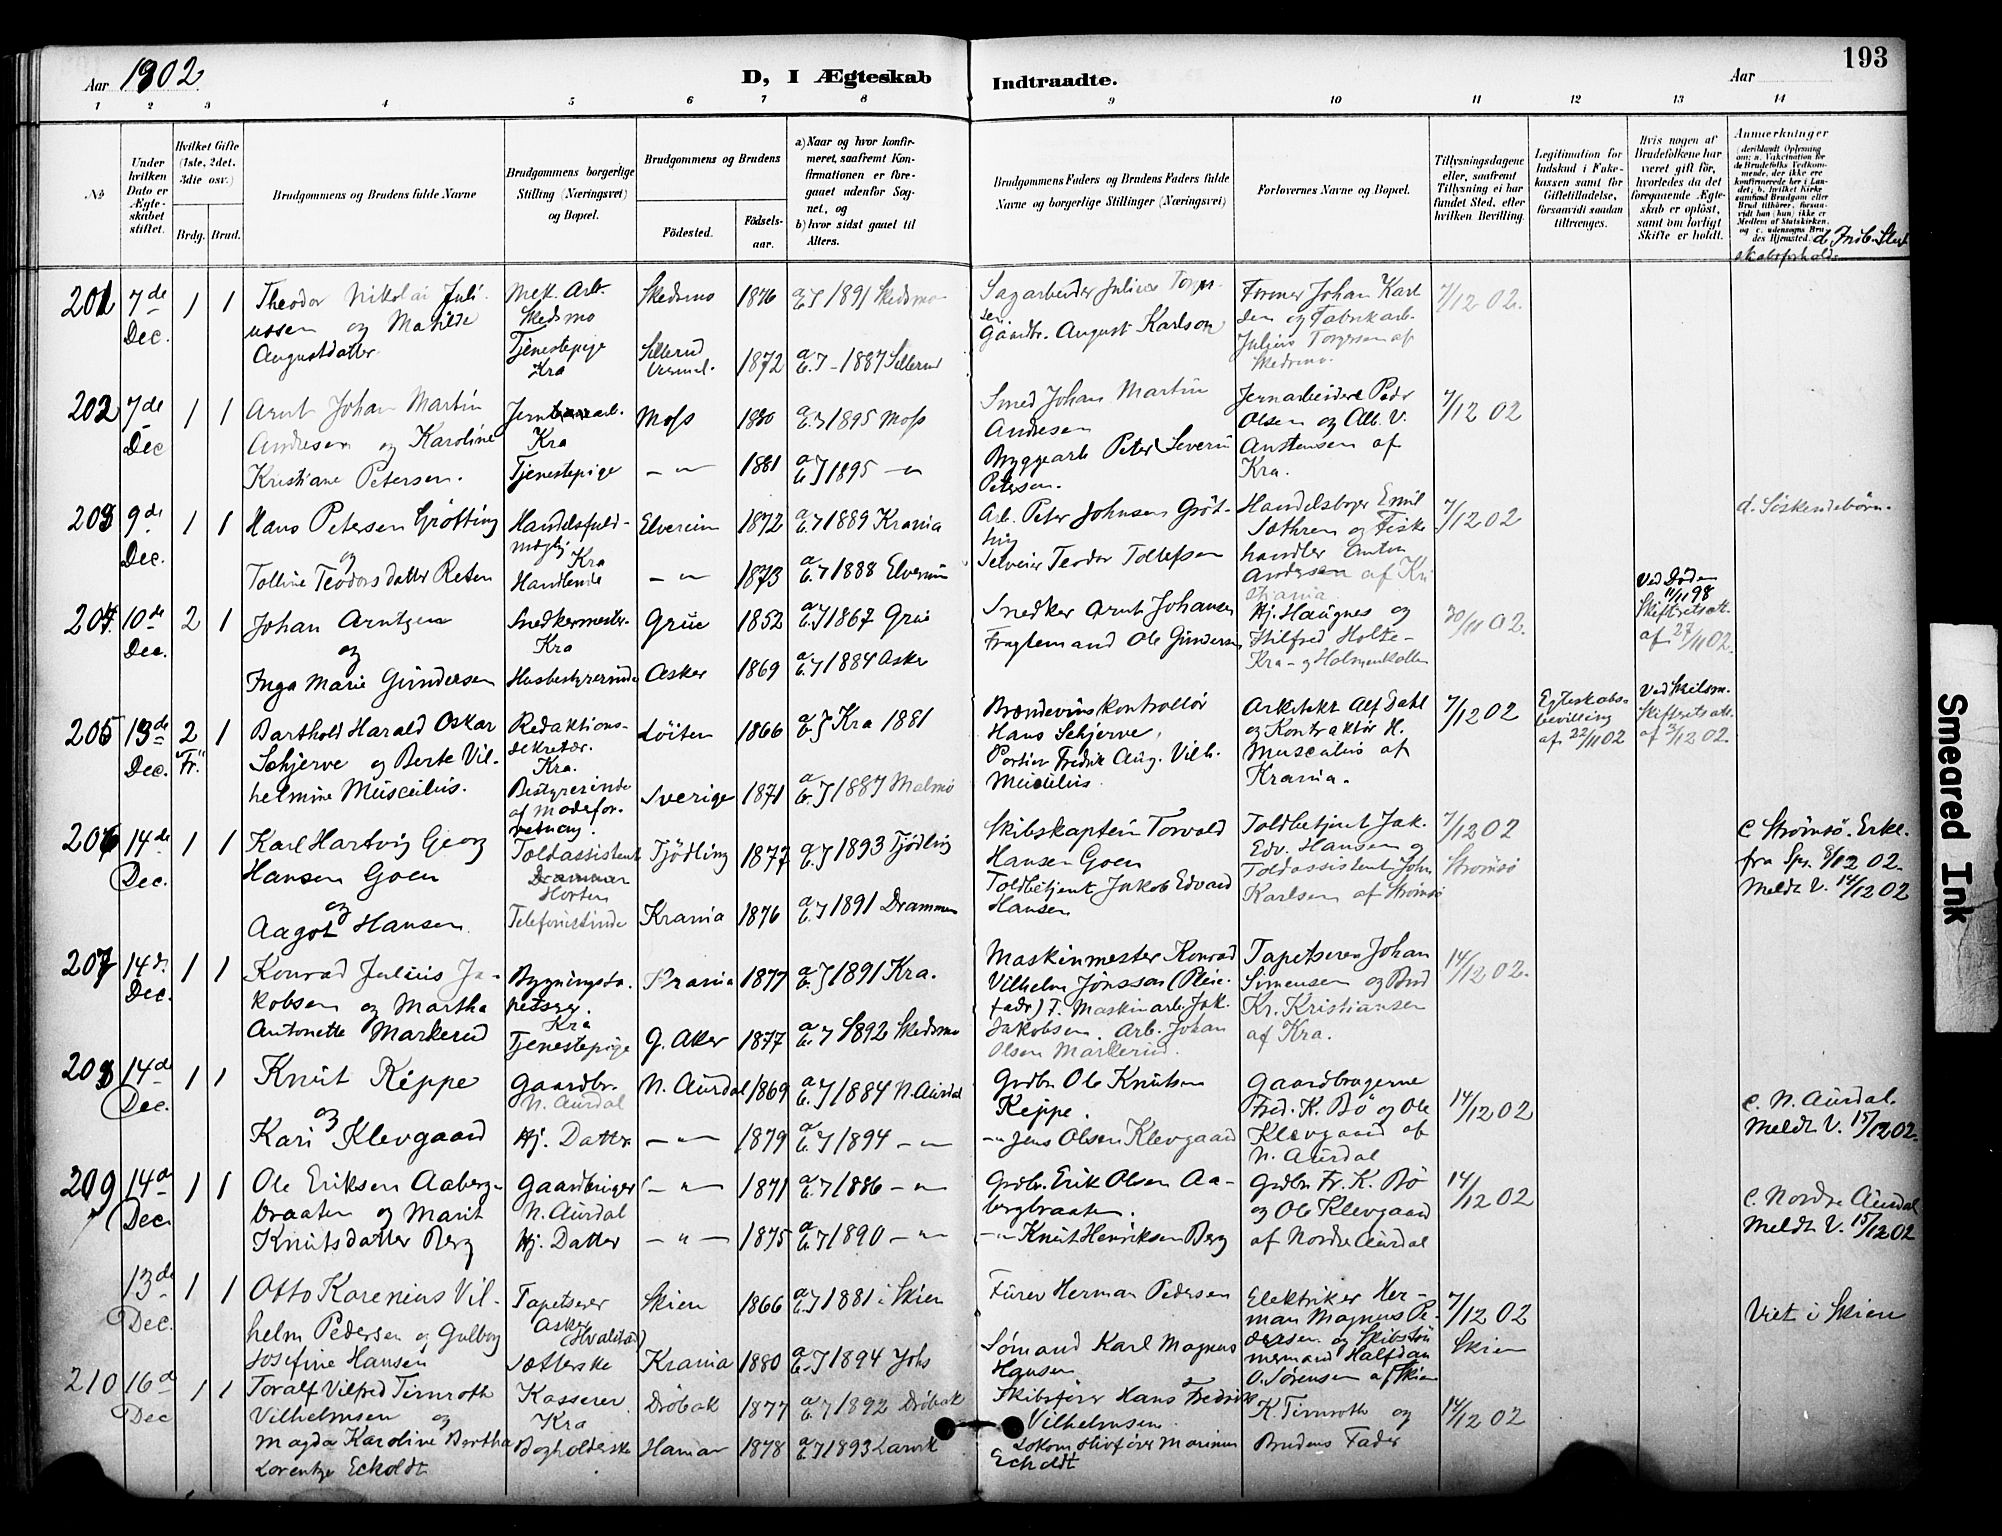 Aar 1902.
D, I Ægteskab Indtraadte.
Aar
193
1 2 3 4 5 6 7 8 9 10 11 12 13 14
No
Under hvilken Dato er Ægteskabet stiftet.
Hvilket Gifte (1ste, 2det, 3die osv.)
Brdg. Brud.
Brudgommens og Brudens fulde Navne
Brudgommens borgerlige Stilling (Næringsvei) og Bopæl.
Brudgommens og Brudens
Fødested.
Fødselsaar.
a) Naar og hvor konfirmeret, saafremt Konfirmationen er foregaaet udenfor Sognet, og
b) hvor sidst gaaet til Alters.
Brudgommens Faders og Brudens Faders fulde Navne og borgerlige Stillinger (Næringsvei)
Forlovernes Navne og Bopæl.
Tillysningsdagene eller, saafremt Tillysning ei har fundet Sted, efter hvilken Bevilling.
Legitimation for Indskud i Enkekassen samt for Giftetilladelse, forsaavidt saadan tiltrænges.
Hvis nogen af Brudefolkene har været gift før, hvorledes da det foregaaende Ægteskab er opløst, samt om lovligt Skifte er holdt.
Anmærkninger
201 7de Dec. 1 1
Theodor Nikolai Juliussen og Matilde Augustdatter
Mek. Arb. Skedsmo
Tjenestepige Kra
Skedsmo 1876 1891 Skedsmo
Sillerud 1872 1887 Sillerud
Sagarbeider Julius
Gaardbr. August Karlson
Former Johan Karl og Fabrikarb. Julius Torgersen af Skedsmo.
7/12 02.
202 7de Dec 1 1
Arnt Johan Martin Andresen og Karoline Kristiane Petersen.
Kra
Tjenestepige
Moss 1880 1895 Moss
— " — 1881 1895 — "
Smed Johan Martin Andresen
Byggearb Peter Severin Petersen.
Jernarbeidere Pedr Olsen og Alb. V. Anstensen af Kra.
7/12 02
203 9de Dec. 1 1
Hans Petersen Grötting og
Tolline Teodorsdatter Reten
Handelsfuldmægtig Kra
Handlende
Elverum 1872 1889 Krania
— " — 1873 1888 Elverum
Arb. Peter Johnsen Grötting
Selveier Teodor Tollefsen
Handelsborger Emil Sæthren og Fiskehandler Anton Andersen af Kristiania
7/12 02
d. Söskendebörn.
204. 10de Dec. 2 1
Johan Arntzen
og
Inga Marie Gundersen
Snedkermester Kra
Husbestyrerinde
Grue 1852 1867 Grue
Asker 1869 1884 Asker
Snedker Arnt Johansen
Fraflem and Ole Gundersen
Hj. Haugnes og Hilfred Holte - Kra - og Holmenkollen
30/11 02.
Ved Døden 11/11 98
Skiftretsatt. af 27/11 02.
205 13de Dec. 2 Fr. 1
Barthold Harald Oskar Schjerve og Berte Vilhelmine Musculus.
Redaktionssekretær. Kra.
Bestyrerinde af Modeforretning.
Löiten 1866 Kra 1881
Sverige 1871 1887 Malmö
Brændevinskontrollör Hans Schjerve,
Portier Fredrik Aug. Vilh. Musculus.
Arkitekt Alf Dahl og Kontraktör H. Musculus af Krania.
7/12 02
Egteskabsbevilling af 22/11 02
Ved Skilsm. Skiftretsatt. af 3/12 02.
206 14de Dec. 1 1
Karl Hartvig Georg Hansen Goen
og
Aagot Hansen.
Toldassistent Drammen Horten
Telefonistinde
Tjödling 1877 1893 Tjödling
Krania 1876 1891 Drammen
Skibskaptein Torvald Hansen Goen
Toldbetjent Jakob Edvard Hansen
Toldbetjent Jak. Edv. Hansen og Toldassistent John Karlsen af Strömsö
7/12 02 Strömsö
c Strömsö. Erkl. fra Spr. 8/12 02.
Meldt V. 14/12 02
207 14d. Dec. 1 1
Konrad Julius Jakobsen og Martha Antonette Markerud
Bygningstapetserer. Kra
Tjenestepige
Krania 1877 1891 Kra.
Ø. Aker 1877 1892 Skedsmo
Maskinmester Konrad Vilhelm Jönsson (Pleiefadr) F. Maskinarb. Jak. Jakobsen. Arb. Johan Olsen Markerud.
Tapetserer Johan Simensen og Bud Kr. Kristiansen af Kra.
14/12 02.
208 14de Dec. 1 1
Knut Reppe
og
Kari Klevgaard
Gaardbr. N. Aurdal
Hj. Datter
N. Aurdal 1869 1884 N. Aurdal
— " — 1879 1894 — " —
Grdbr. Ole Knutsen Reppe.
— " Jens Olsen Klevgaard
Gaardbrugerne Fred. K. Bö og Ole Klevgaard af N. Aurdal
14/12 02
c. N. Aurdal.
Meldt V. 15/12 02.
209 14de Dec. 1 1
Ole Eriksen Aabergbraaten og Marit Knutsdatter Berg
Gaardbruger N. Aurdal
Hj. Datter
— " — 1871 1886 — " —
— " — 1875 1890 — " —
Grdbr. Erik Olsen Aabergbraaten.
— " Knut Henriksen Berg
Grdbr. Fr. K. Bö og Ole Klevgaard af Nordre Aurdal
14/12 02
c. Nordre Aurdal
Meldt V. 15/12 02
13de Dec. 1 1
Otto Karenius Vilhelm Pedersen og Gulborg Josefine Hansen
Tapetserer Asker (Hvalstad)
Sætterske
Skien 1866 1881 i Skien
Krania 1880 1894 Johs
Fürer Herman Pedersen
Sömand Karl Magnus Hansen
Elektriker Herman Magnus Pedersen og Skibstömmermand Halfdan O. Sørensen af Skien
7/12 02 Skien
Viet i Skien
210 16de Dec 1 1
Toralf Vilfred Timroth Vilhelmsen og Magda Karoline Bertha Lorentze Eckoldt
Kasserer. Kra
Bogholderske
Dröbak 1877 1892 Dröbak
Hamar 1878 1893 Larvik
Skibsfører Hans Fredrik Vilhelmsen.
Lokomotivfører Marinus Eckoldt
K. Timroth og Brudens Fader
14/12 02
Smeared Ink